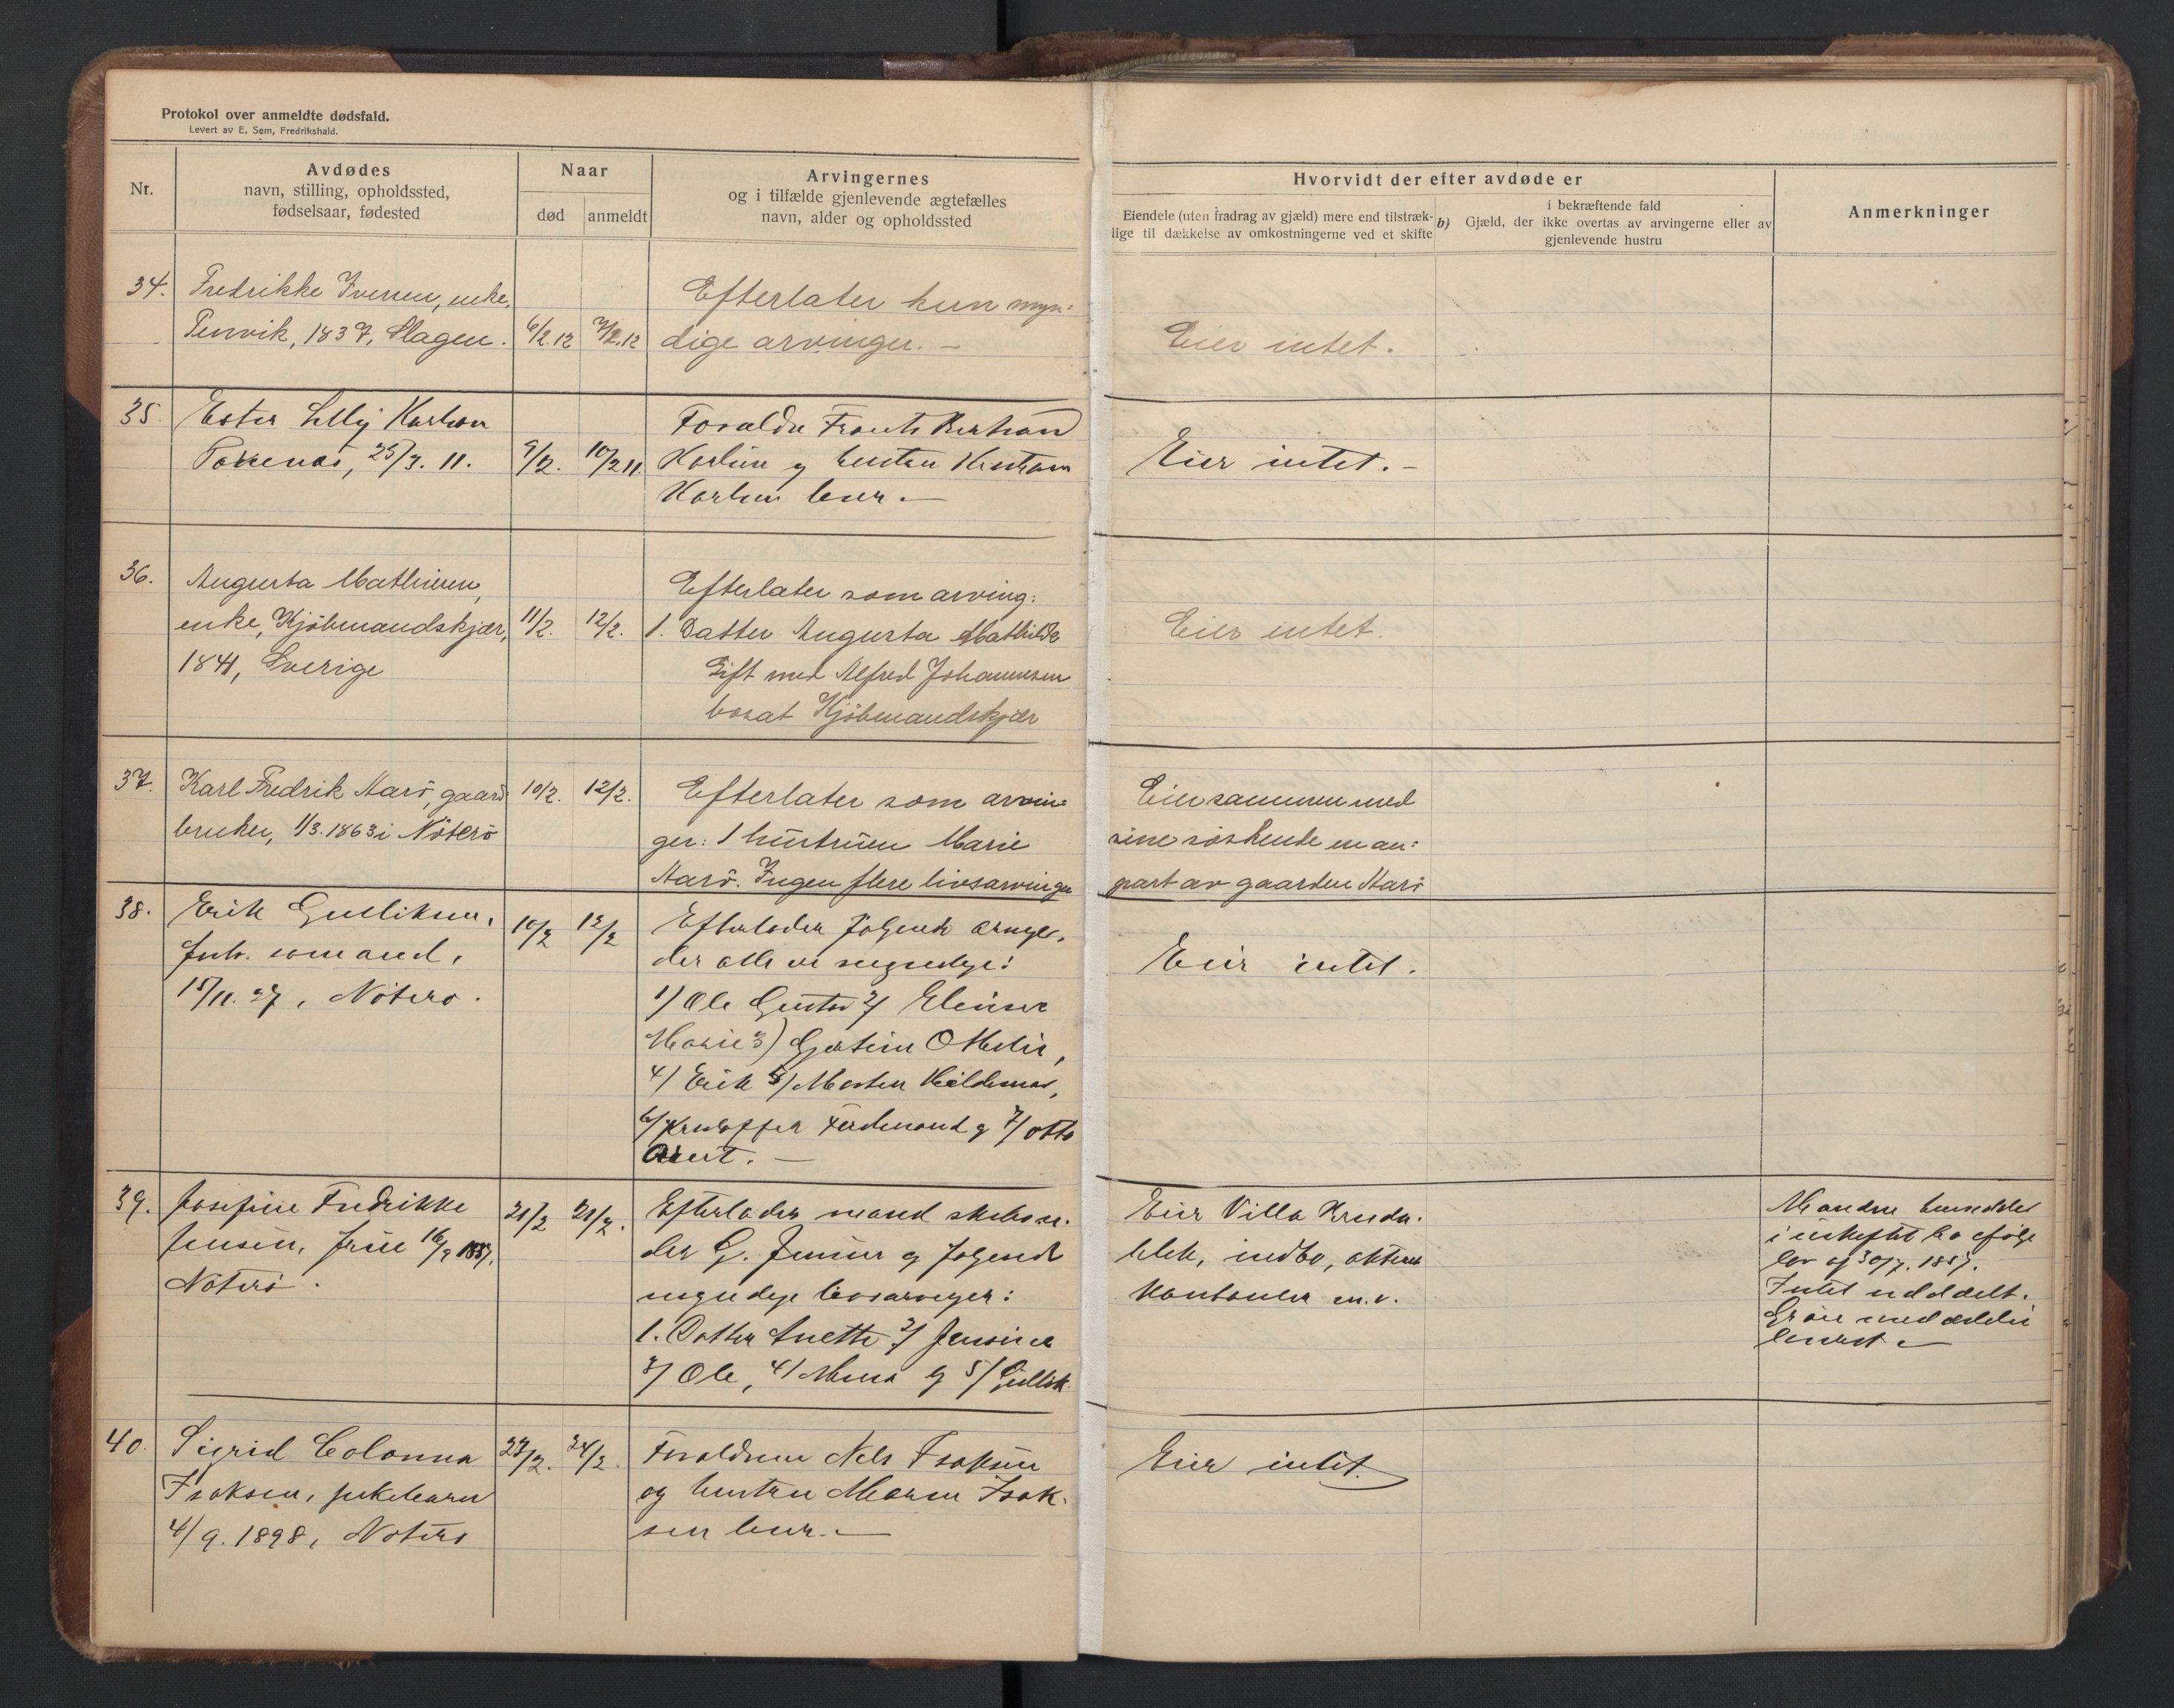 Protokol over anmeldte dødsfald.
Levert av E. Sem, Fredrikshald.
Nr.
Avdødes
navn, stilling, opholdssted,
fødselsaar, fødested
Naar
død
anmeldt
Arvingernes
og i tilfælde gjenlevende ægtefælles
navn, alder og opholdssted
Hvorvidt der efter avdøde er
Eiendele (uten fradrag av gjæld) mere end tilstræk-
lige til dækkelse av omkostningerne ved et skifte
i bekræftende fald
b) Gjæld, der ikke overtas av arvingerne eller av
gjenlevende hustru
Anmerkninger
34. Fredrikke Iversen, enke,
Tenvik, 1837, Slagen.
6/2.12
7/2.12
Efterlater kun myn-
dige arvinger. —
Eier intet.
35. Ester Lilly Karlson
25/3. 11.
9/2.
10/2 11.
Forældre Frants
Karlson og hustru
Karlson lever. —
Eier intet. —
36. Augusta Mathisen,
enke, Kjöbmandskjær,
1841, Sverige
11/2.
12/2.
Efterlater som arving:
1. Datter Augusta Mathilde
Gift med Alfred Johannesen
bosat Kjöbmandskjær
Eier intet.
37. Karl Fredrik Aarö, gaard
bruker, 1/3. 1863 i Nöterö
10/2.
12/2.
Efterlater som arvin-
ger: 1 hustruen Marie
Aarö. Ingen flere livsarvinger
Eier sammen med
sine söskende en an-
part av gaarden Aarö
38. Erik Gulliksen,
sömand,
15/11. 27, Nöterö.
10/2
12/2
Efterlader følgende
der alle er myndige:
1) Ole Gustav 2) Elenine
Marie 3) Gjertine Otilie,
4) Erik 5) Morten Hildemar,
6) Kristoffer Ferdinand og 7) Otto
Arent. —
Eier intet.
39. Josefine Fredrikke
Jensen, frue
Nöterö.
21/2
21/2.
Efterlader mand skibsre-
der G. Jensen og følgende
myndige livsarvinger:
1. Datter Anette 2) Jensine
3) Ole, 4) og 5) Gullik
Eier Villa
indbo, aktier
kontanter m.v.
Manden hensidder
i uskiftet bo ifölge
lov af 30/7. 1851.
Intet uddelt.
40. Sigrid Colonna
Isaksen, pikebarn
4/9. 1898, Nöterö
23/2.
24/2.
Forældrene Nels Isaksen
og hustru Maren Isak-
sen lever. —
Eier intet.